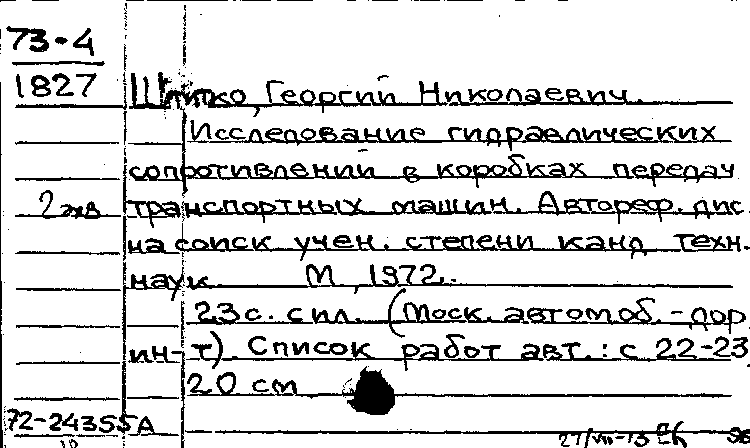 73-4
1827
Шпитко, Георгий Николаевич.
Исследование гидравлических
сопротивлений в коробках передач
2 экз транспортных машин. Автореф. дис.
на соиск учен. степени канд техн.
наук М, 1972.
23 с. с ил. (Моск. автомоб.-дор.
ин-т). Список работ авт.: с 22-23
20 см
72-24355А